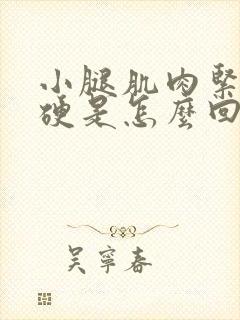 小腿肌肉緊
硬是怎麼回
吳寧春